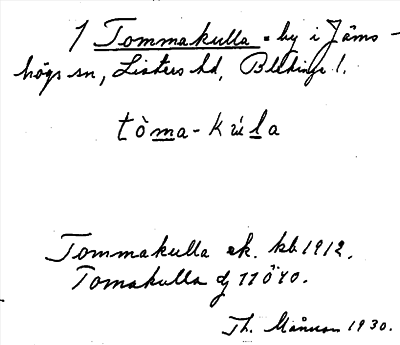 1 Tommakulla = by i Jäms-
högs sn, Listers hd, Blekinge l.
tòma-kúla
Tommakulla ek. kb 1912.
Tomakulla dj 11Ö40.
Th. Månsson 1930.